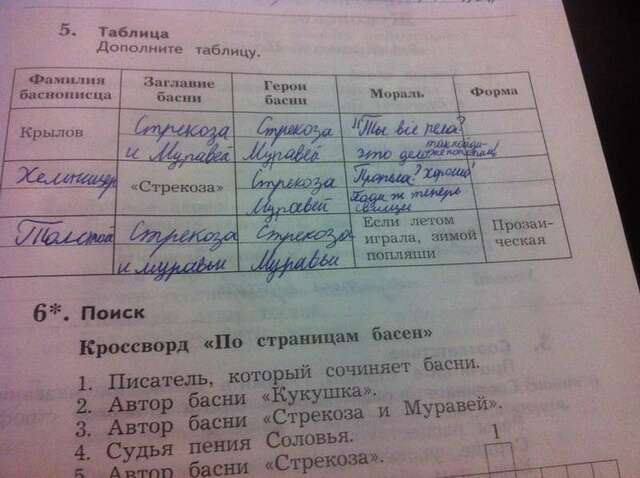 5. Таблица
Дополните таблицу.
Фамилия баснописца Заглавие басни Герои басни Мораль Форма
Крылов Стрекоза Стрекоза "Ты всё пела?
и Муравей Муравей это дело так поди-
же попляши!
Хемницер «Стрекоза» Стрекоза Пропела? Хорошо!
Муравей Поди ж теперь
свищи
Толстой Стрекоза Стрекоза Если летом Прозаи-
и муравьи Муравьи играла, зимой ческая
попляши
6*. Поиск
Кроссворд «По страницам басен»
1. Писатель, который сочиняет басни.
2. Автор басни «Кукушка».
3. Автор басни «Стрекоза и Муравей».
4. Судья пения Соловья.
1
5. Автор басни «Стрекоза».